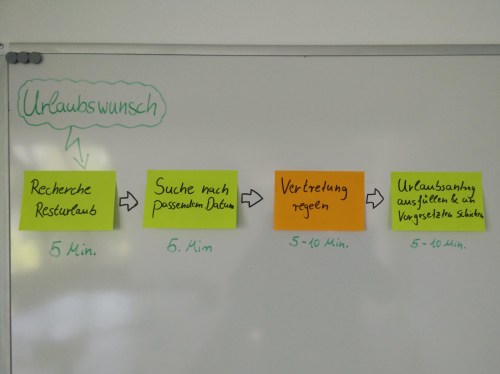 Urlaubswunsch
Recherche
Resturlaub
5 Min.
Suche nach
passendem Datum
5. Min
Vertretung
regeln
5-10 Min.
Urlaubsantrag
ausfüllen & an
Vorgesetzten schicken
5-10 Min.